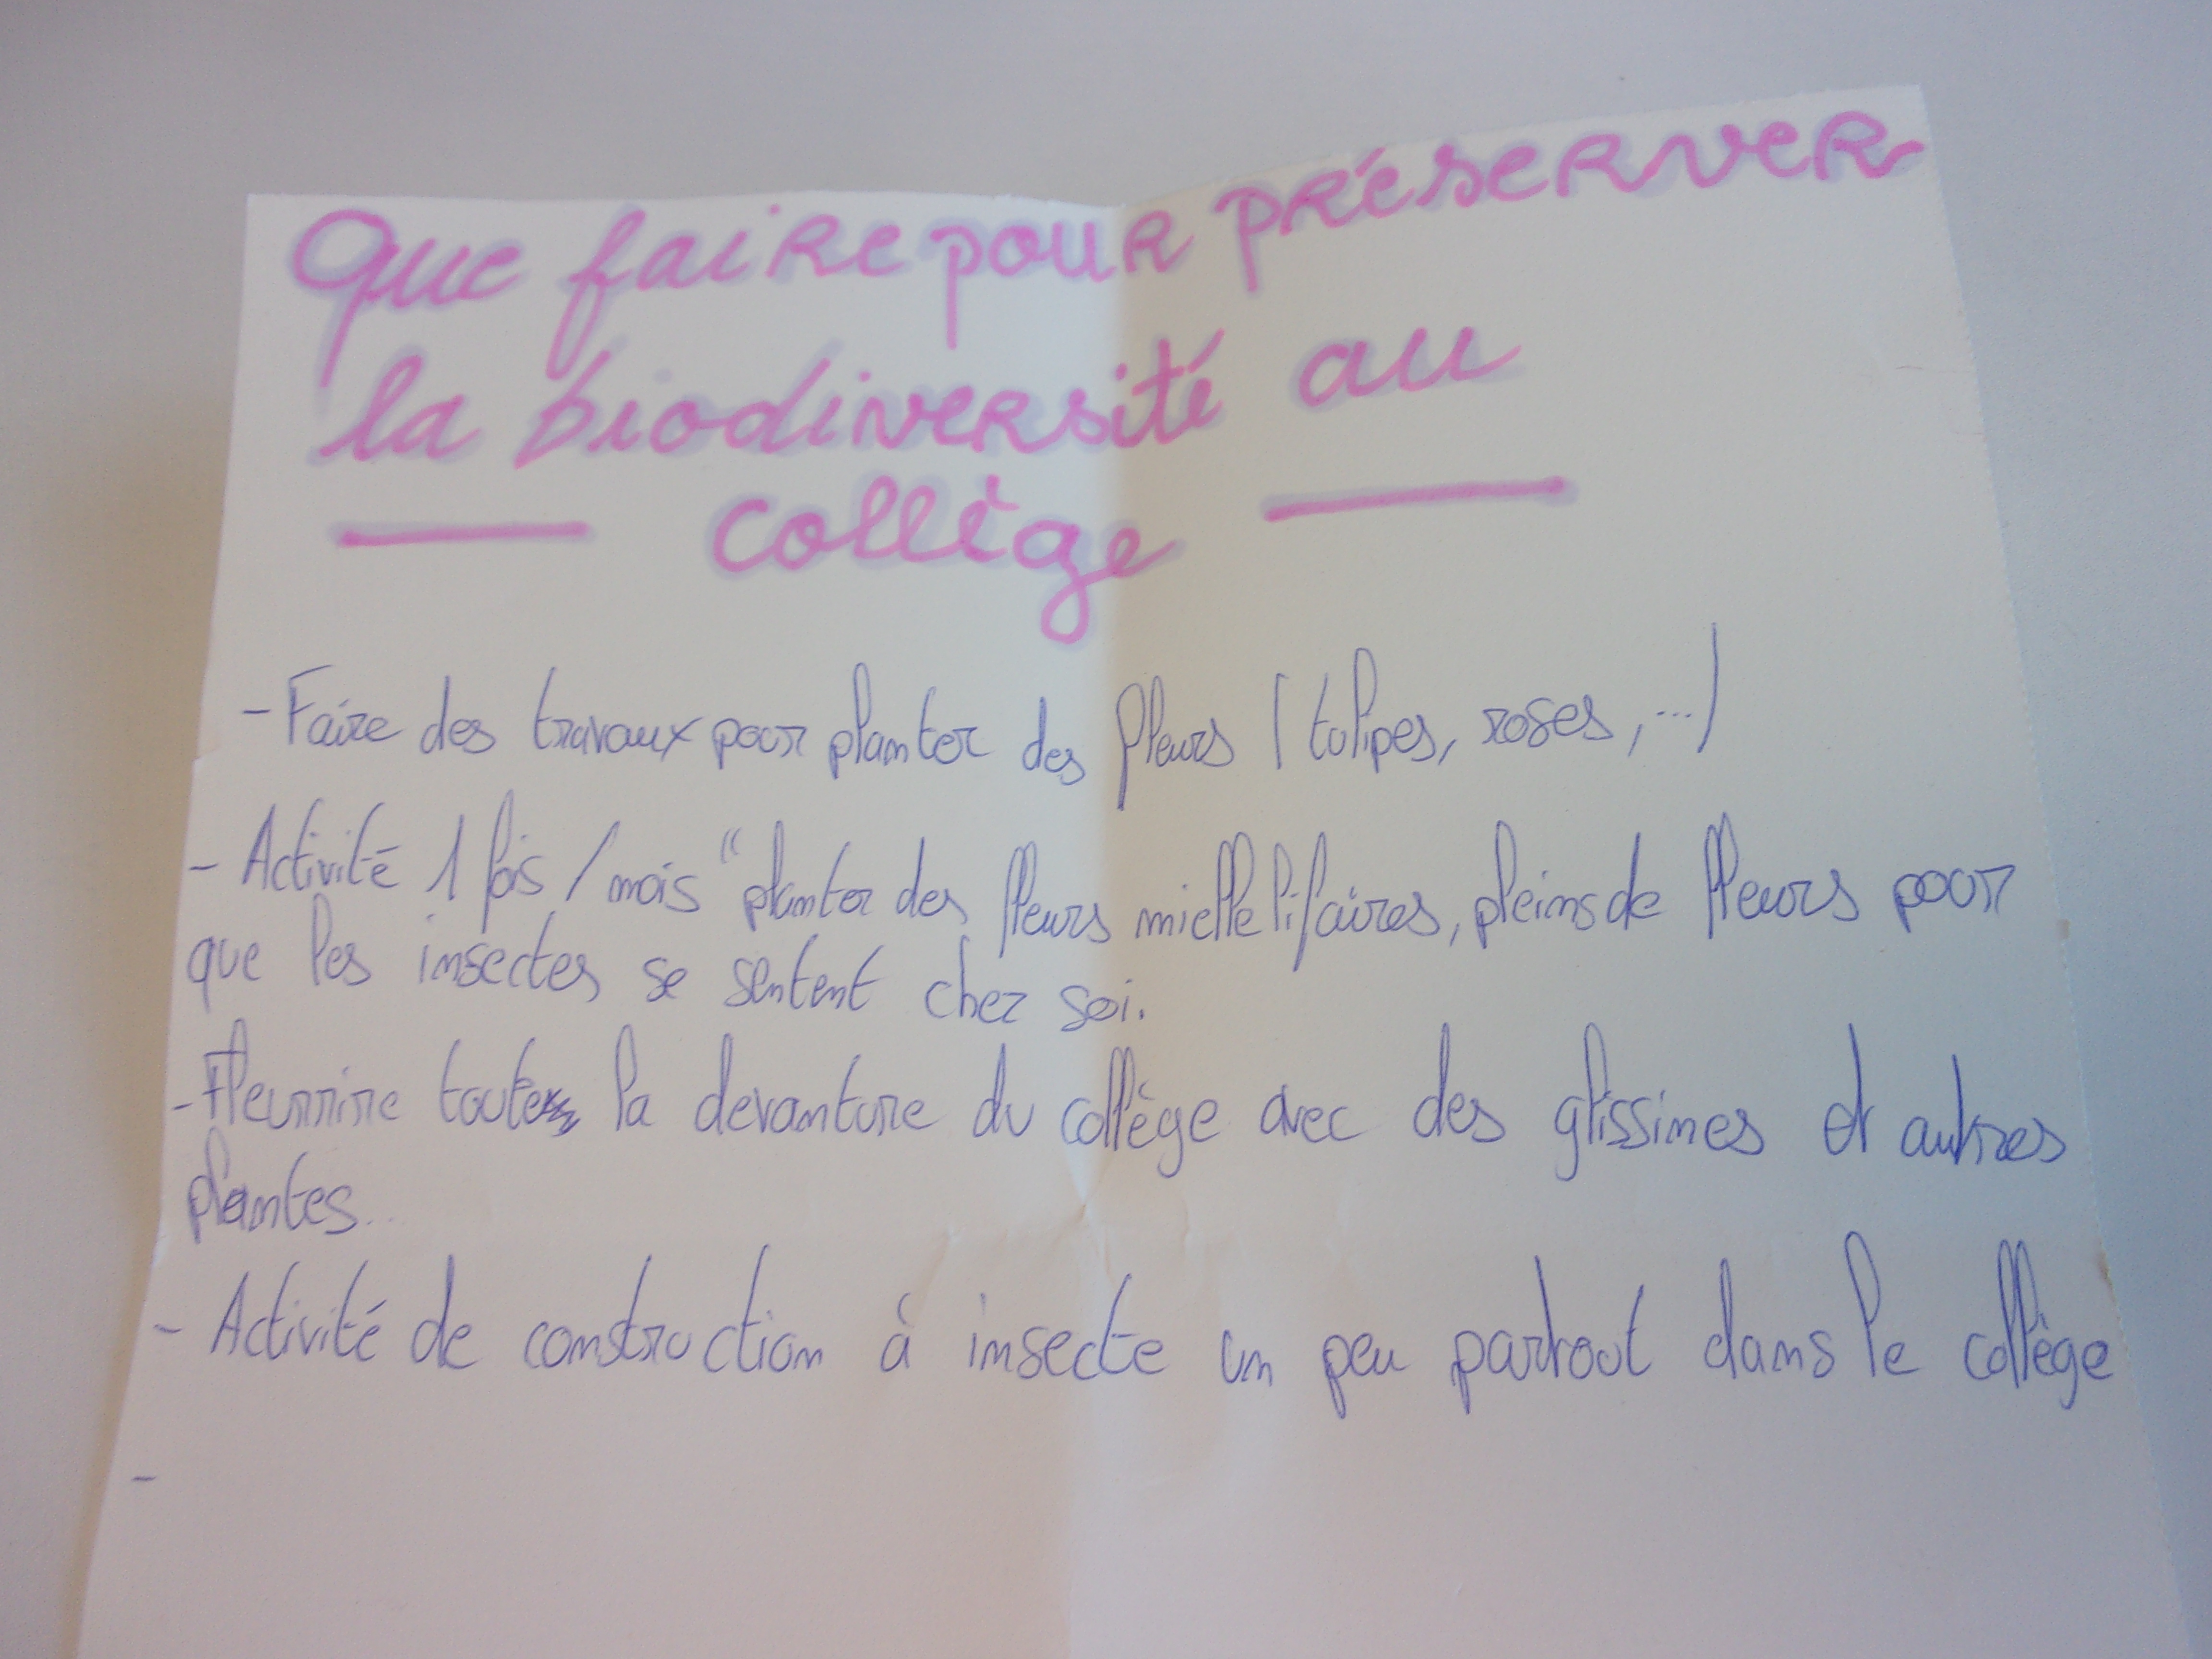 Que faire pour préserver
la biodiversité au
collège
- Faire des travaux pour planter des fleurs (tulipes, roses, ...)
- Activité 1 fois / mois " planter des fleurs miellelifaires, pleins de fleurs pour
que les insectes se sentent chez soi.
- Fleurrire toute la devanture du collège avec des glissines et autres
plantes..
- Activité de construction à insecte un peu partout dans le collège
-